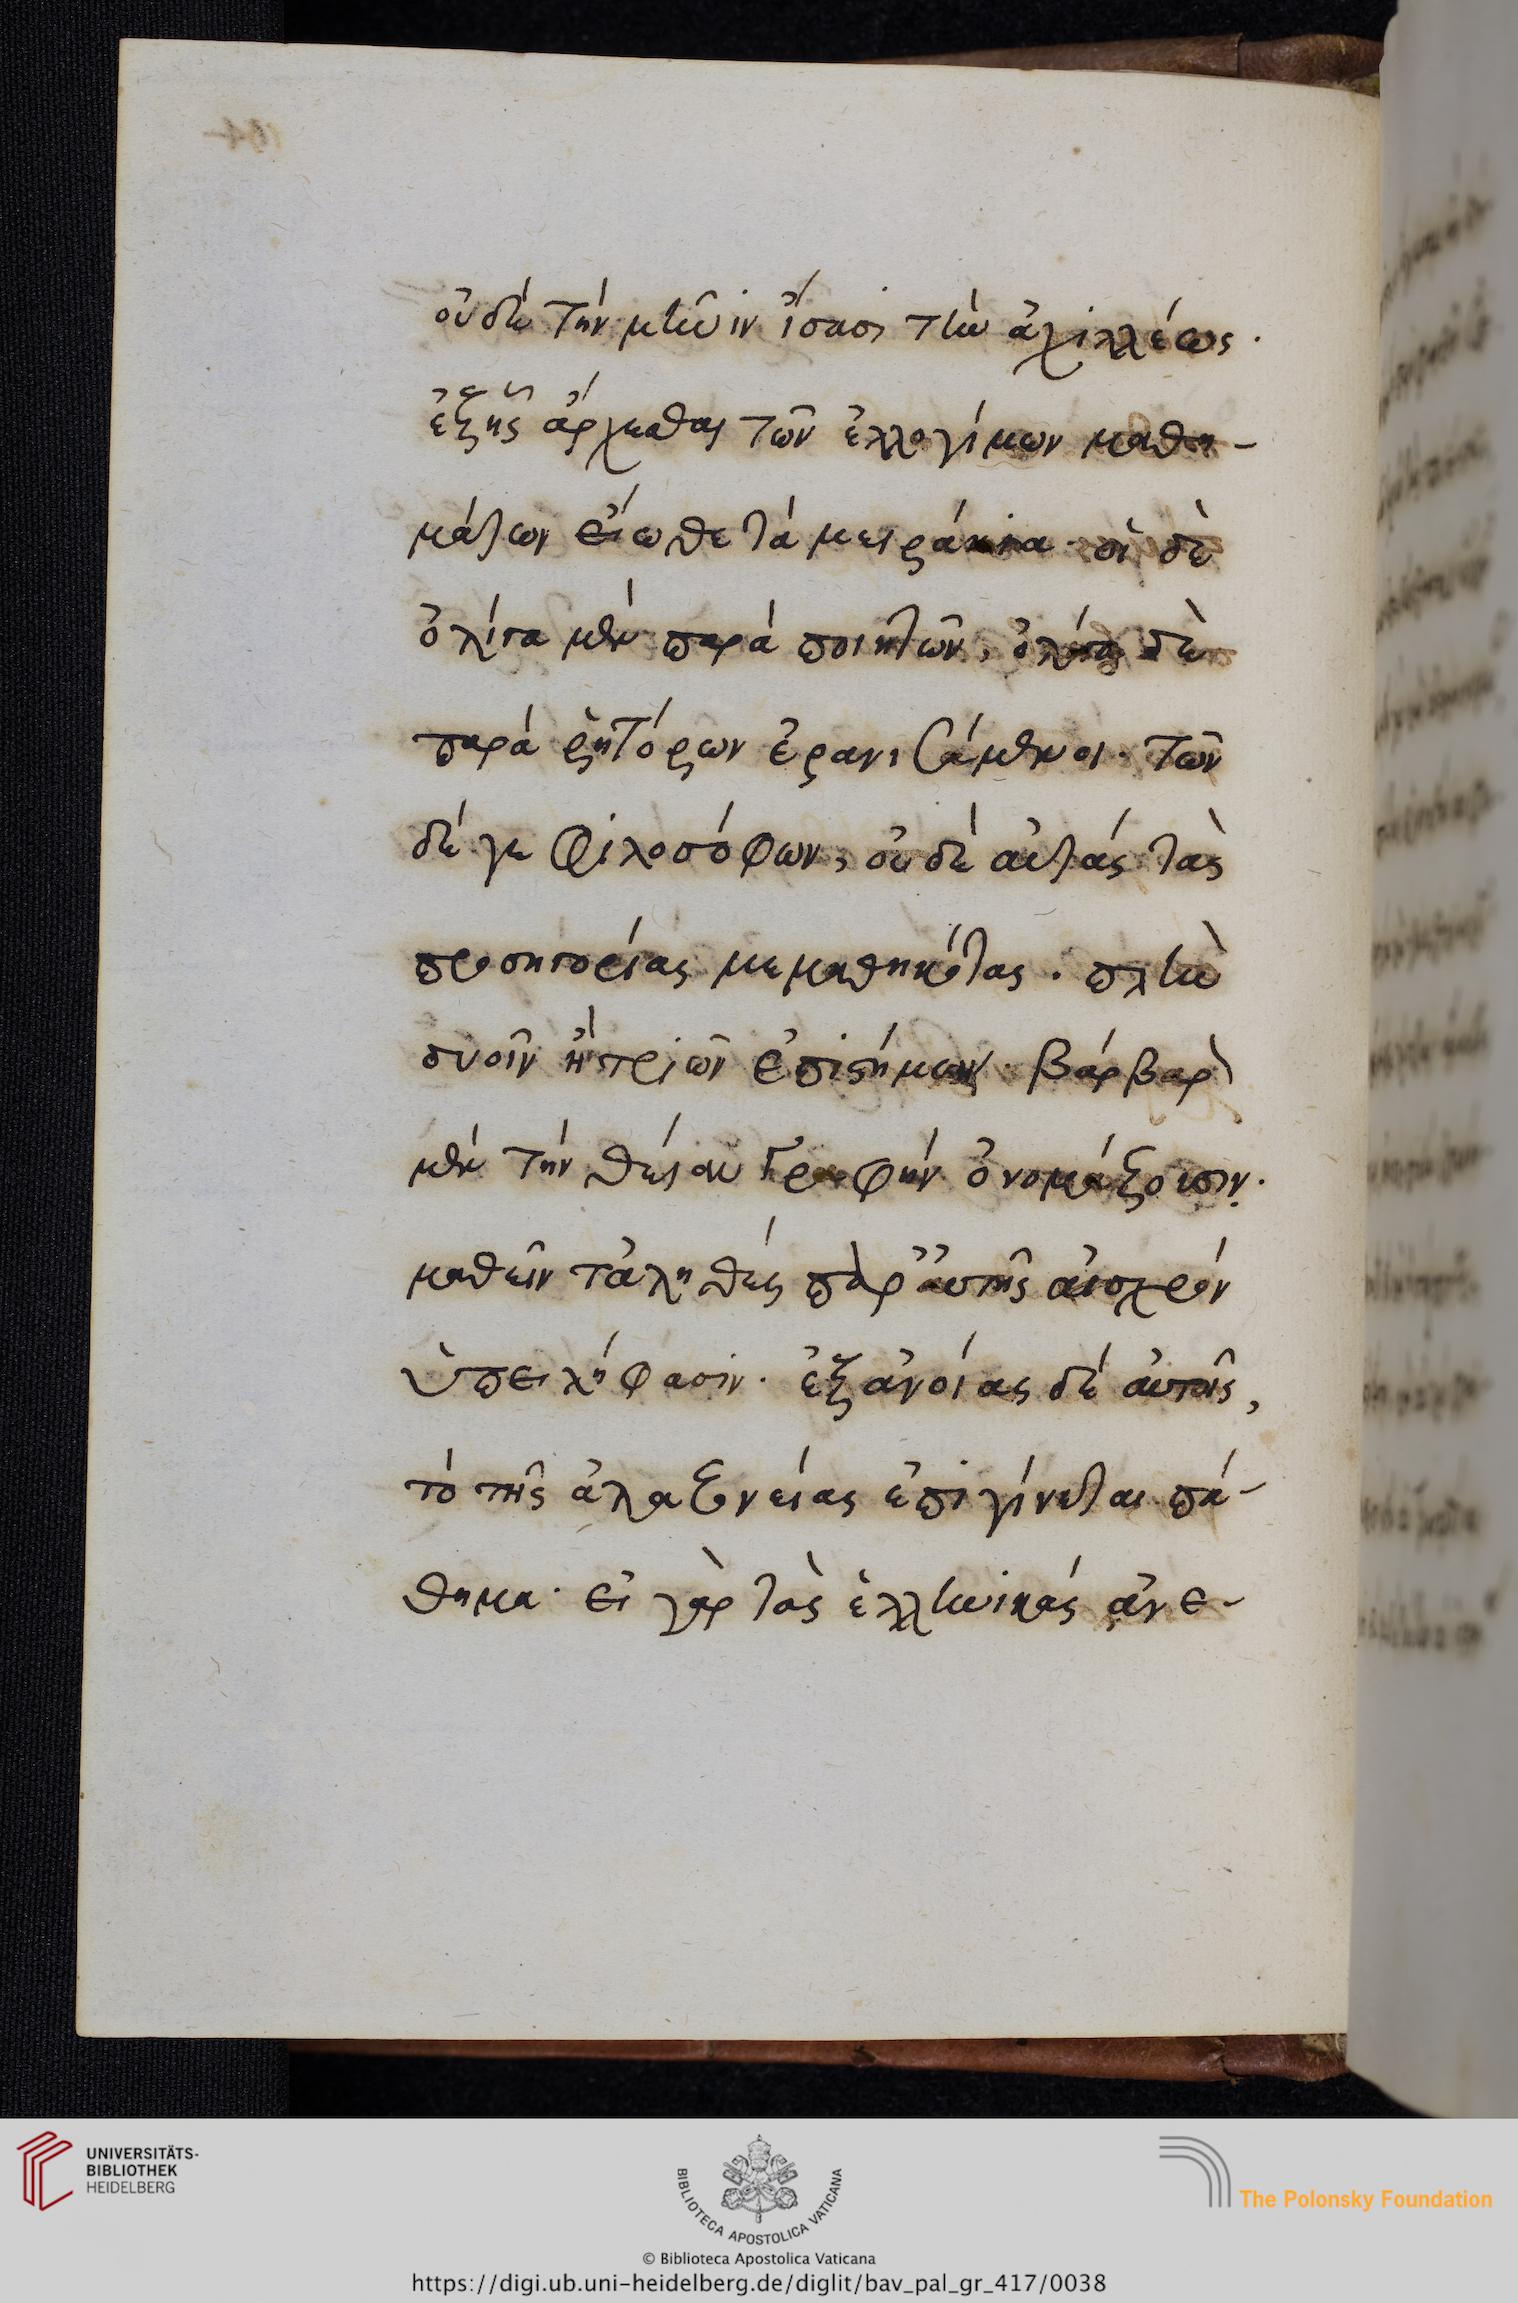 οὐδὲ τὴν μῆνιν ἴσασι τὴν ἀχιλλέως.
ἐξ ἧς ἄρχεσθαι τῶν ἐλλογίμων μαθη-
μάτων εἴωθε τὰ μειράκια· οἱ δὲ
ὀλίγα μὲν παρὰ ποιητῶν, ὀλίγα δὲ
παρὰ ῥητόρων ἐρανισάμενοι· τῶν
δέ γε φιλοσόφων, οὐδὲ αὐτὰς τὰς
προσηγορίας μεμαθηκότας. πλὴν
δυοῖν ἢ τριῶν ἐπισήμων· βάρβαρον
μὲν τὴν θείαν γραφὴν ὀνομάζουσιν·
μαθεῖν τἀληθὲς παρ' αὐτῆς αἰσχρὸν
ὑπειλήφασιν· ἐξ ἀνοίας δὲ αὐτοῖς,
τὸ τῆς ἀλαζονείας ἐπιγίνεται πά-
θημα· εἰ γὰρ τὰς ἑλληνικὰς ἀνε-
UNIVERSITÄTS-
BIBLIOTHEK
HEIDELBERG
BIBLIOTECA APOSTOLICA VATICANA
The Polonsky Foundation
© Biblioteca Apostolica Vaticana
https://digi.ub.uni-heidelberg.de/diglit/bav_pal_gr_417/0038